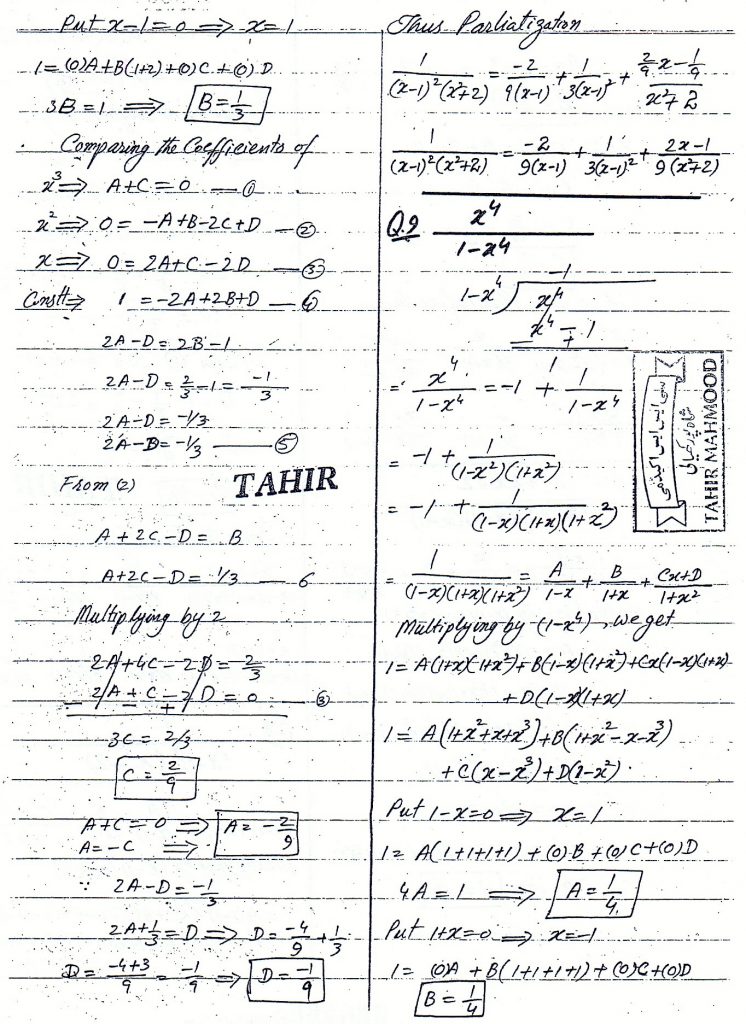 Put x-1=0 ⟹ x=1
1=(0)A+B(1+2)+(0)C+(0)D
3B=1 ⟹ B=1/3
Comparing the Coefficients of
x³⟹ A+C=0 —①
x²⟹ 0=-A+B-2C+D —②
x⟹ 0=2A+C-2D —③
Const⟹ 1=-2A+2B+D —④
2A-D=2B-1
2A-D=2/3-1=-1/3
2A-D=-1/3
2A-D=-1/3 —⑤
From (2)
TAHIR
A+2C-D= B
A+2C-D=1/3 — 6
Multiplying by 2
2A+4C-2D=2/3
2A+C-2D=0 ③
- - +
3C=2/3
C=2/9
A+C=0 ⟹ A=-2/9
A=-C ⟹
∵ 2A-D=-1/3
2A+1/3=D ⟹ D=-4/9+1/3
D=-4+3/9=-1/9 ⟹ D=-1/9
Thus Parliatization
1/(x-1)²(x²+2)=-2/9(x-1)+1/3(x-1)²+(2/9x-1/9)/x²+2
1/(x-1)²(x²+2)=-2/9(x-1)+1/3(x-1)²+2x-1/9(x²+2)
Q.9 x⁴/1-x⁴
-1
1-x⁴)x⁴
x⁴-1
+
= x⁴/1-x⁴=-1+1/1-x⁴
=-1+1/(1-x²)(1+x²)
=-1+1/(1-x)(1+x)(1+x²)
=1/(1-x)(1+x)(1+x²)=A/1-x+B/1+x+Cx+D/1+x²
Multiplying by (1-x⁴), we get
1=A(1+x)(1+x²)+B(1-x)(1+x²)+Cx(1-x)(1+x)
+D(1-x)(1+x)
1=A(1+x²+x+x³)+B(1+x²-x-x³)
+C(x-x³)+D(1-x²)
Put 1-x=0 ⟹ x=1
1=A(1+1+1+1)+(0)B+(0)C+(0)D
4A=1 ⟹ A=1/4.
Put 1+x=0 ⟹ x=-1
1=(0)A+B(1+1+1+1)+(0)C+(0)D
B=1/4
TAHIR MAHMOOD